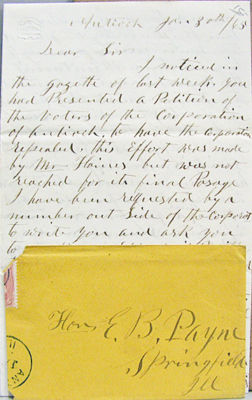 Antioch Jan 30th/65
Dear Sir
I noticed in
the gazette of last week you
had Presented a Petition of
the Voters of the Corporation
of Antioch, to have the Corporation
repealed. this Effort was made
by Mr Haines but was not
reached for its final Passage
I have been requested by a
number out Side of the Corporat
to write you and ask you
Hon E. B. Payne
Springfield
Ill